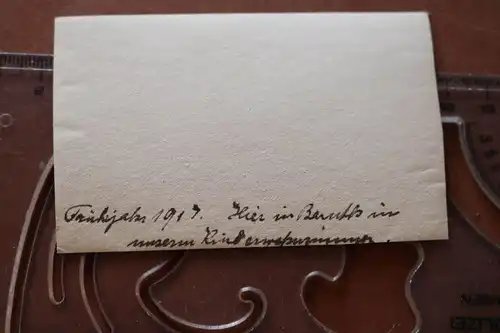 Frühjahr 1917. Hier in Baruth in
unserm Kinderwohnzimmer.